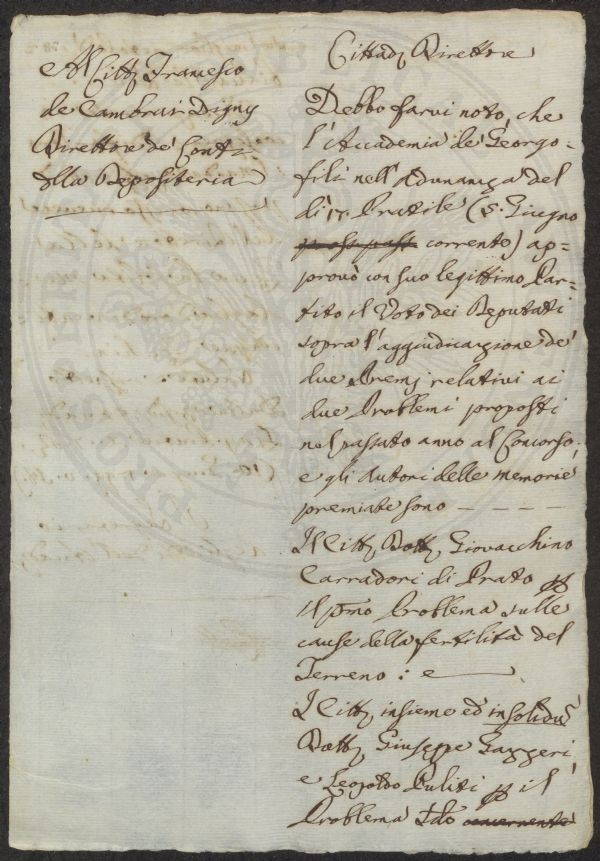 Al Citt. Francesco
de Cambrai Digny
Direttore de' Conti
della Depositeria
Cittad. Direttore
Debbo farvi noto, che
l'Accademia de Georgo-
fili nell'Adunanza del
dì 17. Pratile (5. Giugno
corrente) ap=
provò con suo legittimo Par=
tito il Voto dei Deputati
sopra l'aggiudicazione de'
due Premj relativi ai
due Problemi proposti
nel passato anno al Concorso,
e gli Autori delle memorie
premiate sono - - - -
Il Citt. Dott. Giovacchino
Carradori di Prato pp
il pmo Problema sulle
cause della fertilità del
Terreno: e
I Citt. insieme ed in solidū
Dott. Giuseppe Gazzeri,
e Leopoldo Puliti pp il
Problema 2do concernente